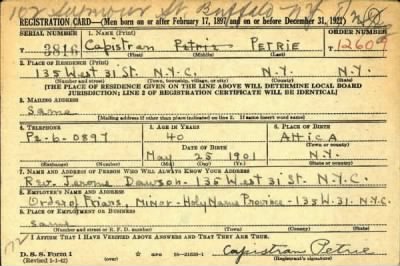 102 Seymour St. Buffalo N.Y.
REGISTRATION CARD—(Men born on or after February 17, 1897 and on or before December 31, 1921)
SERIAL NUMBER 1. NAME (Print) ORDER NUMBER
3816 Capistran Petrie PETRIE 12609
(First) (Middle) (Last)
2. PLACE OF RESIDENCE (Print)
135 West 31 St. N.Y.C. N.Y. N.Y.
(Number and street) (Town, township, village, or city) (County) (State)
[THE PLACE OF RESIDENCE GIVEN ON THE LINE ABOVE WILL DETERMINE LOCAL BOARD
JURISDICTION; LINE 2 OF REGISTRATION CERTIFICATE WILL BE IDENTICAL]
3. MAILING ADDRESS
Same
[Mailing address if other than place indicated on line 2. If same insert word same]
4. TELEPHONE 5. AGE IN YEARS 6. PLACE OF BIRTH
Pe-6-0897 40 Attica
DATE OF BIRTH (Town or county)
May 25 1901 N.Y.
(Exchange) (Number) (Mo.) (Day) (Yr.) (State or country)
7. NAME AND ADDRESS OF PERSON WHO WILL ALWAYS KNOW YOUR ADDRESS
Rev. Jerome Dawson - 135 West 31 St. N.Y.C.
8. EMPLOYER'S NAME AND ADDRESS
Order of Friars, Minor - Holy Name Province - 135 W. 31 - N.Y.C.
9. PLACE OF EMPLOYMENT OR BUSINESS
same
(Number and street or R. F. D. number) (Town) (County) (State)
I AFFIRM THAT I HAVE VERIFIED ABOVE ANSWERS AND THAT THEY ARE TRUE.
D. S. S. Form 1
(Revised 1-1-42) (over) 16—21630-1 Capistran Petrie
(Registrant's signature)